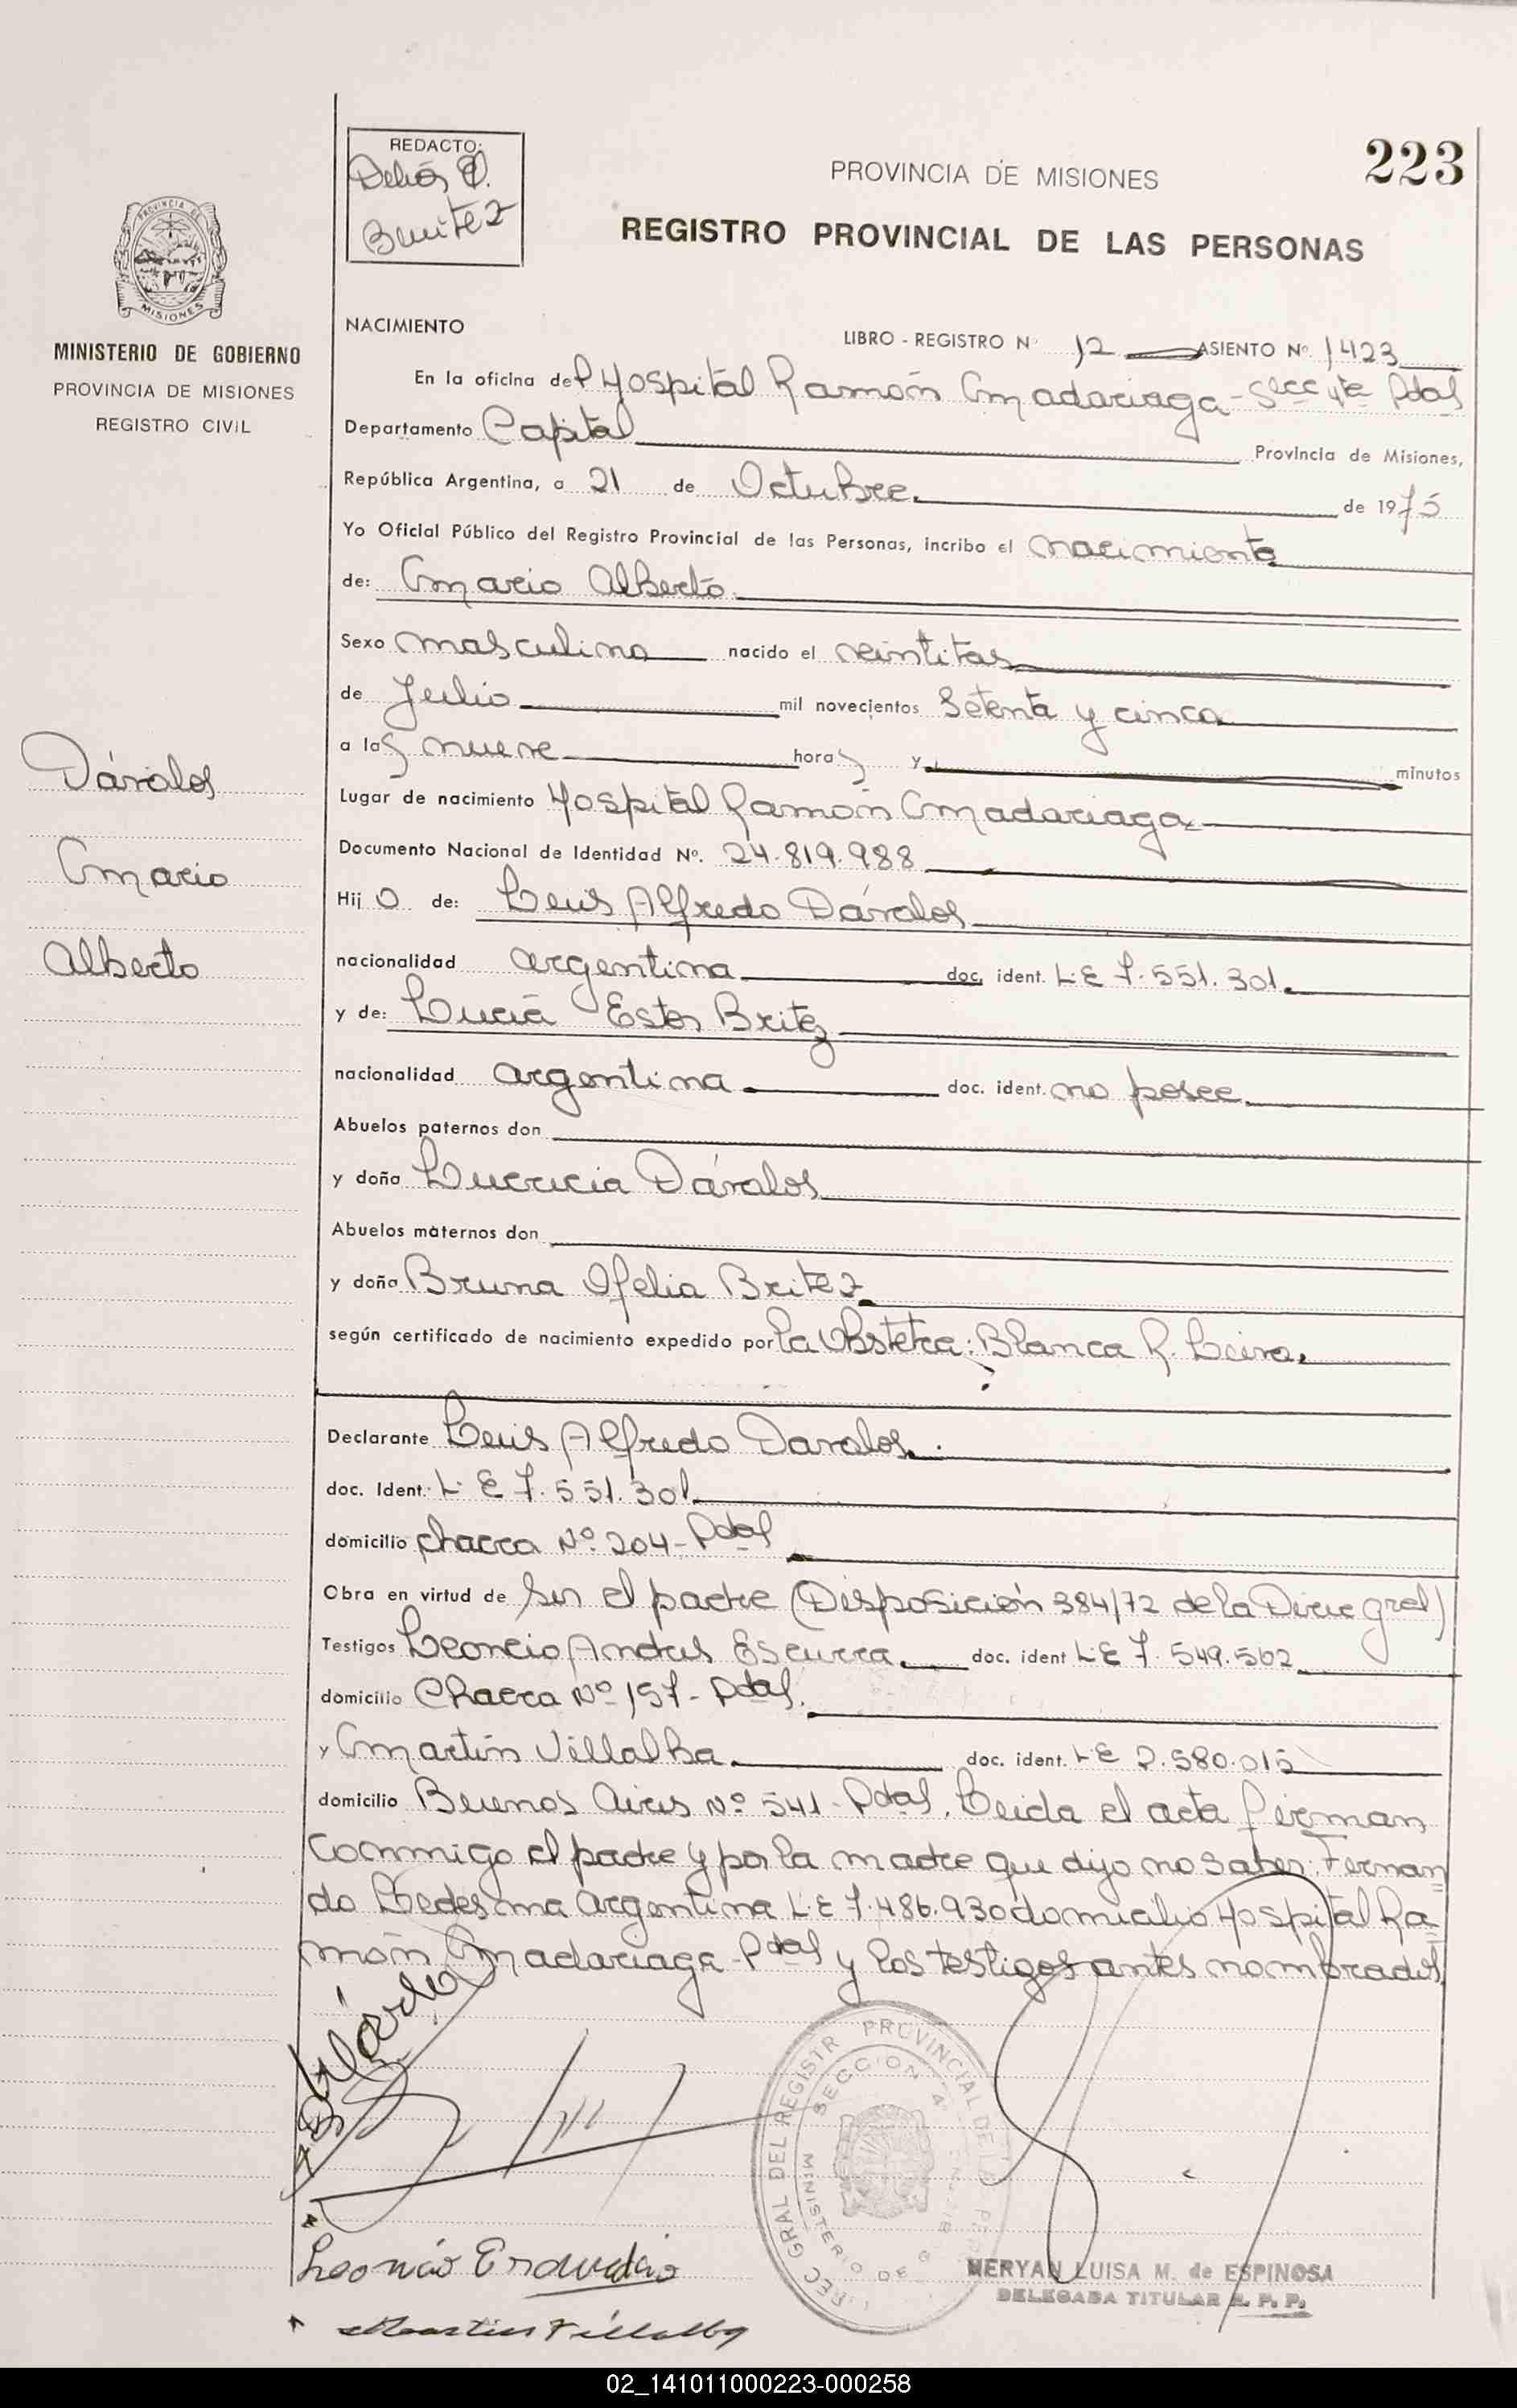 223
REDACTO:
Benitez
PROVINCIA DE MISIONES
REGISTRO PROVINCIAL DE LAS PERSONAS
PROVINCIA DE
MISIONES
MINISTERIO DE GOBIERNO
PROVINCIA DE MISIONES
REGISTRO CIVIL
NACIMIENTO
LIBRO - REGISTRO N° 12 ASIENTO Nº. 1423
En la oficina del Hospital Ramón Madariaga - Secc 4ta Pdas
Departamento Capital Provincia de Misiones,
República Argentina, a 21 de Octubre. de 1975
Yo Oficial Público del Registro Provincial de las Personas, incribo el nacimiento
de: Mario Alberto.
Sexo masculino nacido el
de Julio mil novecientos Setenta y cinco
a las nueve horas y minutos
Dávalos
Mario
Alberto
Lugar de nacimiento Hospital Ramón Madariaga
Documento Nacional de Identidad Nº. 24.819.988
Hij o de: Luis Alfredo Dávalos
nacionalidad argentina doc. ident. L.E 7.551.301.
y de: Lucía Ester Britez
nacionalidad argentina. doc. ident. no posee.
Abuelos paternos don
y doña Lucrecia Dávalos
Abuelos maternos don
y doña Bruna Ofelia Britez
según certificado de nacimiento expedido por la Obstetra: Blanca R. Leiva.
Declarante Luis Alfredo Davalos.
doc. Ident. L. E 7.551.301
domicilio chacra Nº 204 - Pdas
Obra en virtud de ser el padre (Disposición 384/72 de la Direc gral)
Testigos Leoncio Andres Escurra. doc. ident L.E 7.549.562
domicilio Chacra Nº 157 - Pdas.
y Martín Villalba. doc. ident. L.E 2.580.015
domicilio Buenos Aires Nº 541 - Pdas. Leida el acta firman
conmigo el padre y por la madre que dijo no saber: Fernan
do Ledesma argentina L.E 7.486.930 domicilio Hospital Ra
món Madariaga - Pdas y los testigos antes nombrados.
MERYAN LUISA M. de ESPINOSA
DELEGADA TITULAR R. P. P.
Martin Villalba
02_141011000223-000258